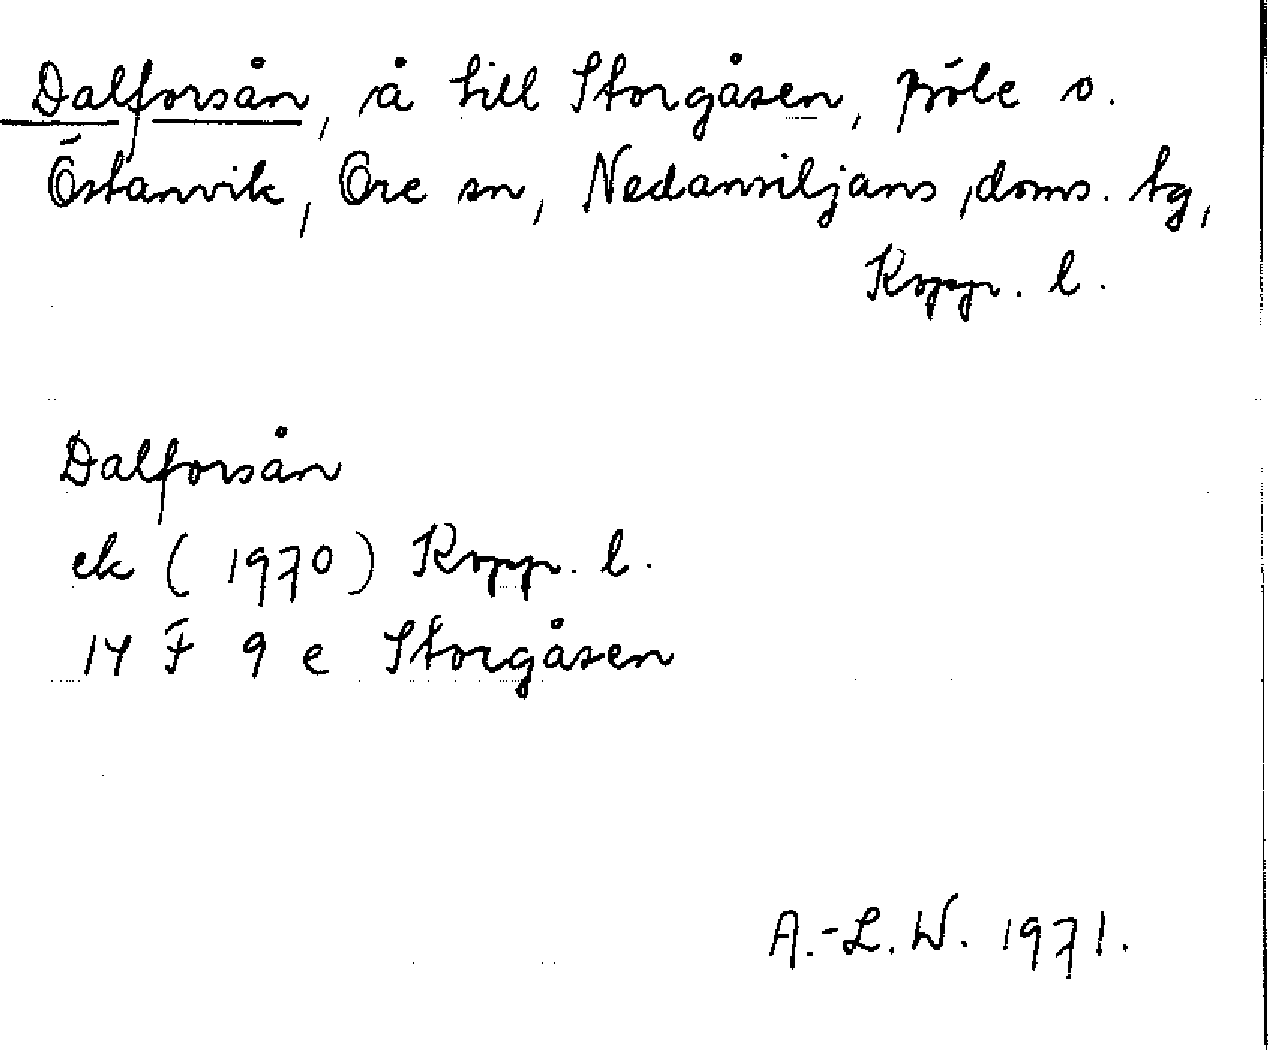 Dalforsån, å till Storgåsen, pöle o.
Östanvik, Ore sn, Nedansiljans doms. tg,
Kopp. l.
Dalforsån
ek (1970) Kopp. l.
14 F 9 e Storgåsen
A.-L. W. 1971.